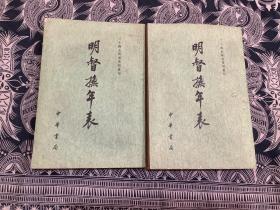 明督撫年表
中华書局
明督撫年表
中华書局